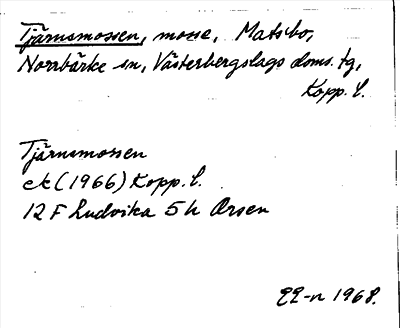 Tjärnsmossen, mosse, Matsbo,
Norrbärke sn, Västerbergslags doms. tg,
Kopp. l.
Tjärnsmossen
ek (1966) Kopp. l.
12 F Ludvika 5h Orsen
1968.